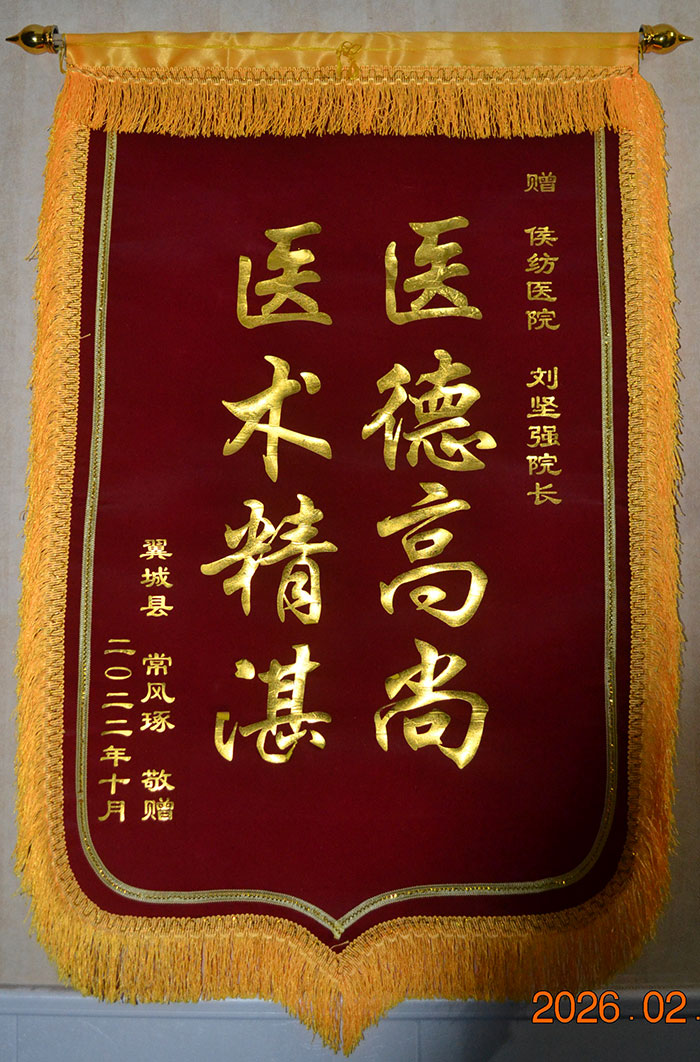 赠 侯纺医院 刘坚强院长
医德高尚
医术精湛
翼城县 常风琢 敬赠
二〇二二年十月
2026.02.